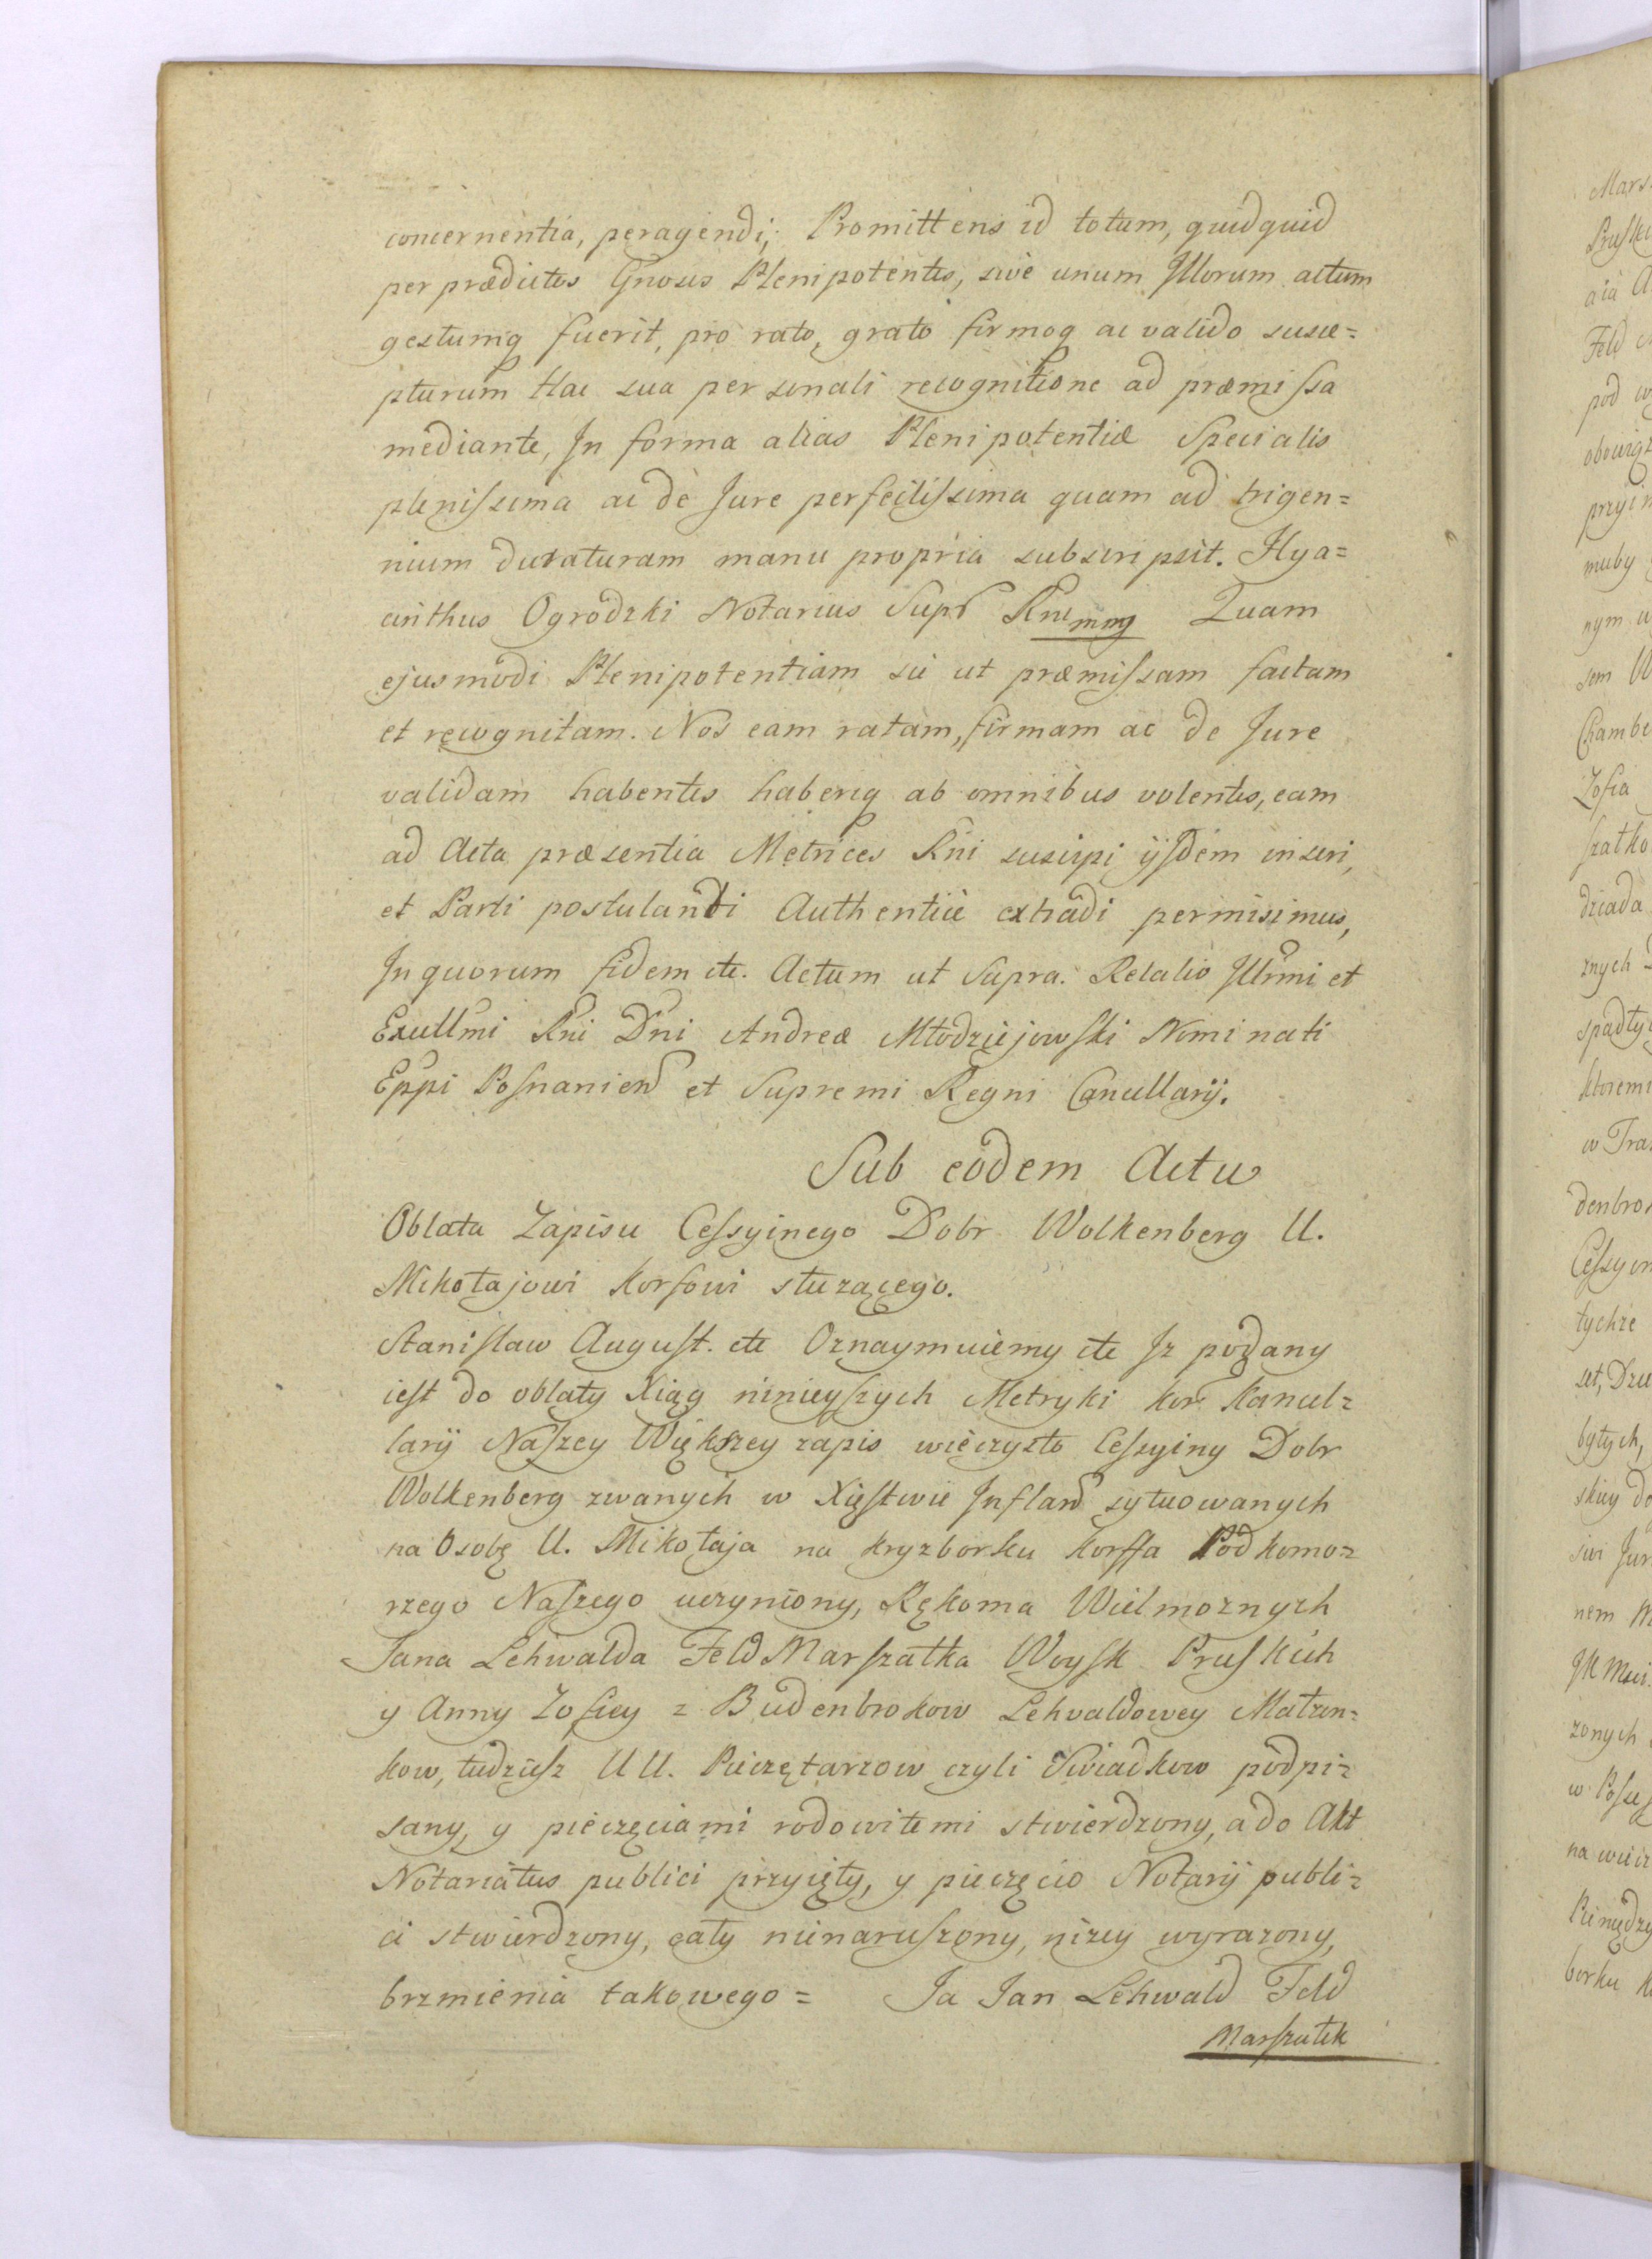 concernentia, peragendi, Promittens id totum, quidquid
per prædictos Gnosus Plenipotentes, sive unum Illorum actum
gestumq fuerit, pro rato, grato firmoq ac valido susce=
pturum Hac sua personali recognitione ad præmissa
mediante, In forma alias Plenipotentiæ Specialis
plenissima ac de Jure perfectissima quam ad trigen=
nium duraturam manu propria subscripsit. Hya=
cinthus Ogrodzki Notarius Supr Rni mmp Quam
ejusmodi Plenipotentiam sic ut præmissam factam
et recognitam. Nos eam ratam, firmam ac de Jure
validam habentes haberiq ab omnibus volentes, eam
ad Acta præsentia Metrices Rni suscipi ijsdem inscri,
et Parti postulandi Authentice extradi permisimus,
In quorum fidem etc. Actum ut Supra. Relatio Illrmi et
Excellmi Rni Dni Andreæ Młodziejowski Nominati
Eppi Posnanien et Supremi Regni Cancellarij.
Sub eodem Actu
Oblata Zapisu Cessyinego Dobr Wolkenberg U.
Mikołajowi Korfowi służącego.
Stanisław August. etc Oznaymuiemy etc Iz podany
iest do oblaty Xiąg ninieyszych Metryki Kor Kancel=
larij Naszey Większey zapis wieczysto Cessyiny Dobr
Wolkenberg zwanych w Xięstwie Inflan sytuowanych
na Osobę U. Mikołaja na Kryzborku Korffa Podkomo=
rzego Naszego uczyniony, Rękoma Wielmoznych
Jana Lehwalda FeldMarszałka Woysk Pruskich
y Anny Zofiey z Budenbrokow Lehvaldowey Małzon=
kow, tudziesz UU. Pieczętarzow czyli Swiadkow podpi=
sany, y pieczęciami rodowitemi stwierdzony, a do Akt
Notariatus publici przyięty, y pieczęcio Notarij publi=
ci stwierdzony, cały nienaruszony, nizey wyrazony,
brzmienia takowego = Ja Jan Lehwald Feld
Marszałek